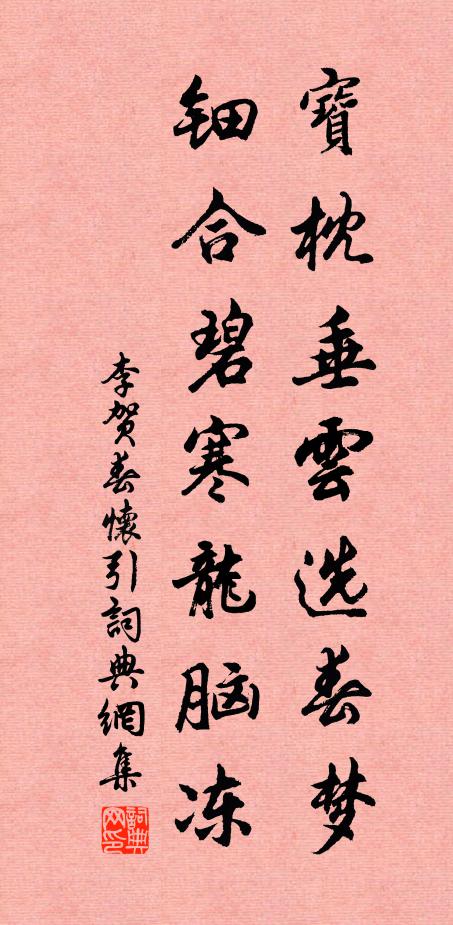 寶枕垂雲选春梦
钿合碧寒龍脑冻
李贺春懷引詞典網集
詞典网印